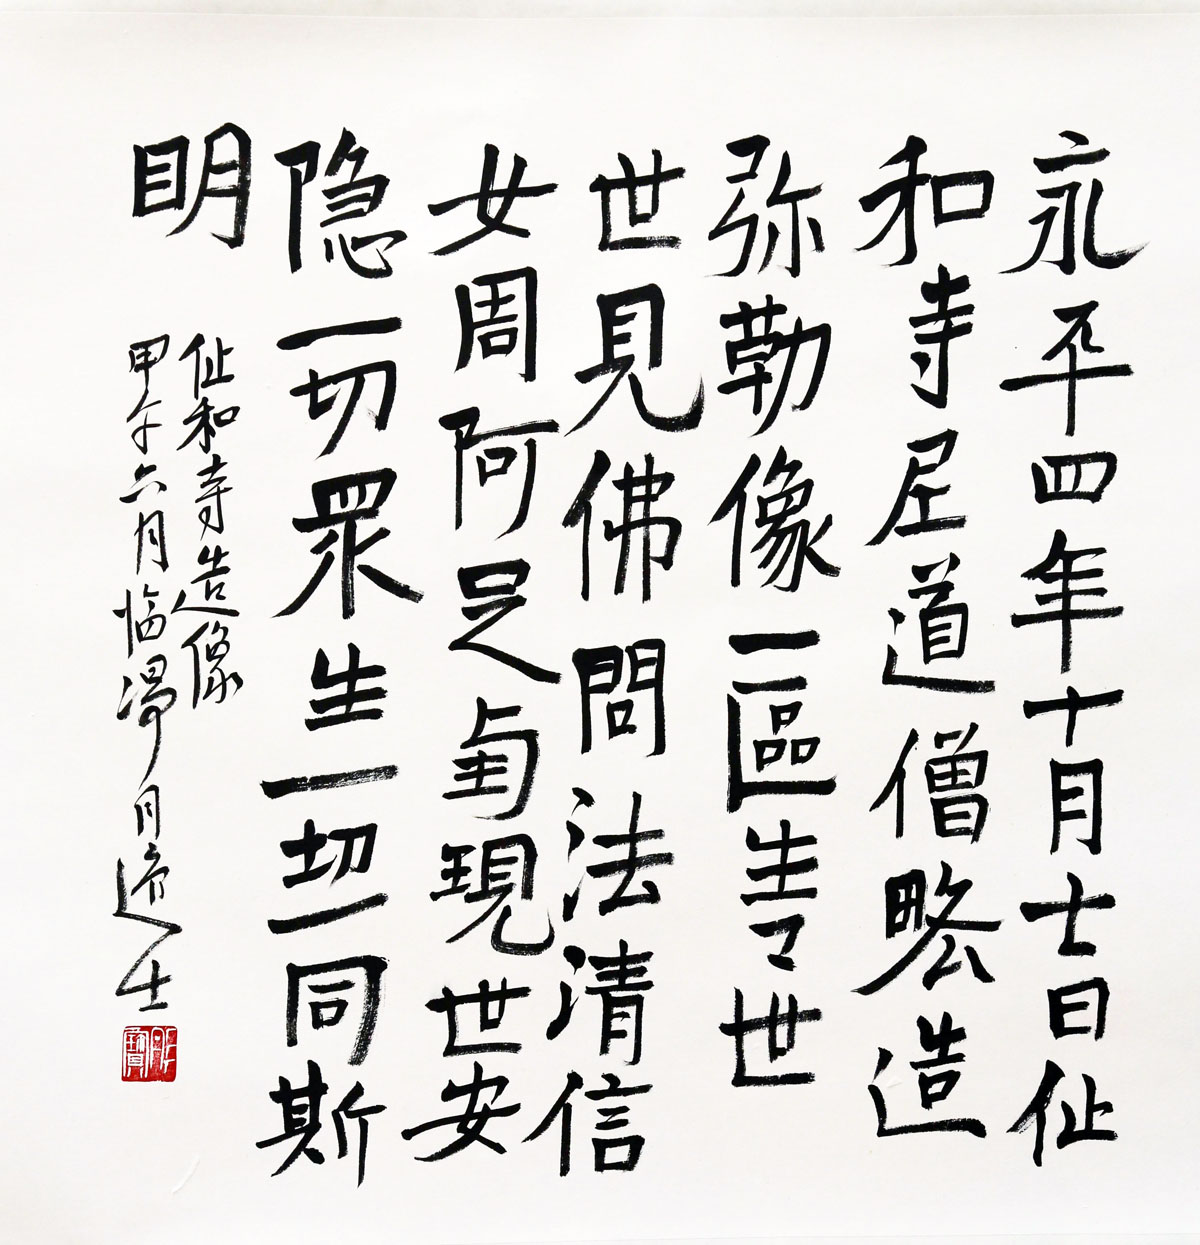 永平四年十月士日仙
和寺尼道僧略造
弥勒像一區生々世
世見佛問法清信
女周阿足現世安
隐一切眾生一切一同斯
明
仙和寺造像
甲午六月临淂月道士